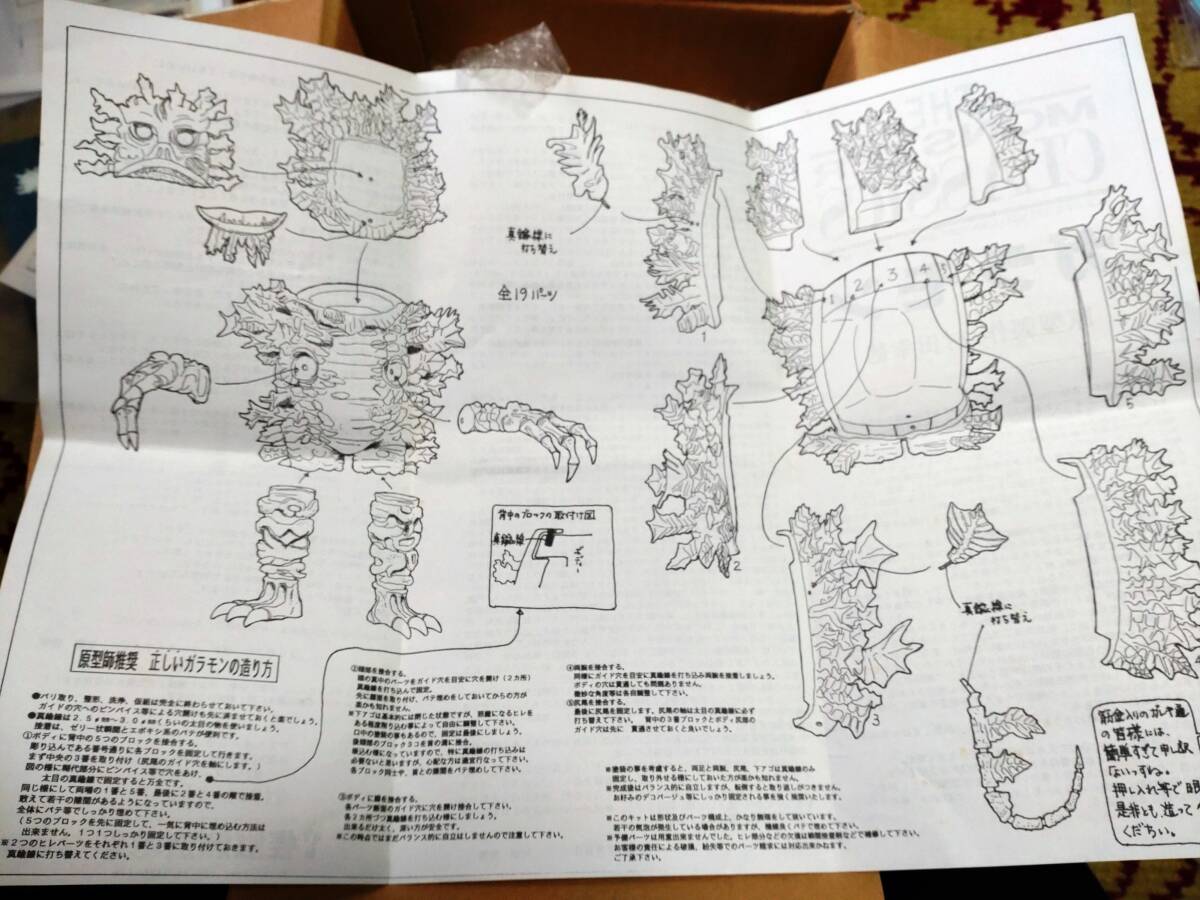 真鍮線に
打ち替え
全19パーツ
1
2
3
4
5
1
2
3
5
背中のブロックの取付け図
真鍮線
ボディー
真鍮線に
打ち替え
筋金入りのガレキ通
の皆様には、
簡単すぎて申し訳
ないっすね。
押し入れ等で眠
是非とも、造って
くだちい。
原型師推奨 正しいガラモンの造り方
●バリ取り、整形、洗浄、仮組は完全に終わらせておいて下さい。
ガイドの穴へのピンバイス等による穴開けも先に済ませておくと楽でしょう。
●真鍮線は2.5mm~3.0mmくらいの太目の物を使いましょう。
接着は、ゼリー状瞬間とエポキシ系のパテが便利です。
①ボディに背中の5つのブロックを接合する。
彫り込んである番号通りに各ブロックを固定して行きます。
まず中央の3番を取り付け(尻尾のガイド穴を軸にします。)
図の様に糊代部分にピンバイス等で穴をあけ、
太目の真鍮線で固定すると万全です。
同じ様にして両端の1番と5番、最後に2番と4番の順で接着。
敢えて若干の隙間があるようになっていますので、
全体にパテ等でしっかり埋めて下さい。
(5つのブロックを先に固定して、一気に背中に埋め込む方法は
出来ません、1つ1つしっかり固定して下さい。)
※2つのヒレパーツをそれぞれ1番と3番に取り付けておきます。
真鍮線に打ち替えてください。
②頭部を接合する。
頭の真中のパーツをガイド穴を目安に穴を開け(2カ所)
真鍮線を打ち込んで固定。
先に顔面を取り付け、パテ埋めをしておいてからの方が
楽かも知れません。
※下アゴは基本的には閉じた状態ですが、邪魔になるヒレを
口中の塗装の事もあるので、固定は最後にしましょう。
後頭部のブロック3コを首の溝に接合。
③ボディに脚を接合する。
各パーツ断面のガイド穴に穴を開け接合して下さい。
出来るだけ太く、深い方が安全です。
※この時点ではまだバランス的に自立はしませんので注意して下さい。
④両腕を接合する。
同様にガイド穴を目安に真鍮線を打ち込み両腕を接着しましょう。
ボディの穴は貫通しても問題ありません。
微妙な角度等は各自調整して下さい。
⑤尻尾を接合する。
最後に尻尾を固定します。尻尾の軸は太目の真鍮線に必ず
打ち替えて下さい。 背中の3番ブロックとボディ尻尾の
ガイド穴は先に 貫通させておくと良いでしょう。
※塗装の事を考慮すると、両足と両腕、尻尾、下アゴは真鍮線のみ
固定し、取り外せる様にしておいた方が楽かも知れません。
※完成後はバランス的に自立しますが、転倒すると取り返しがつきません。
お好みのデコパージュ等にしっかり固定される事を強く推奨いたします。
※このキットは形状及びパーツ構成上、かなり無理をして抜いています。
若干の気泡が発生している場合がありますが、機嫌良くパテで埋めて下さい。
お客様の責任による破損、紛失等でのパーツ請求には対応出来かねます。
ご了承下さい。